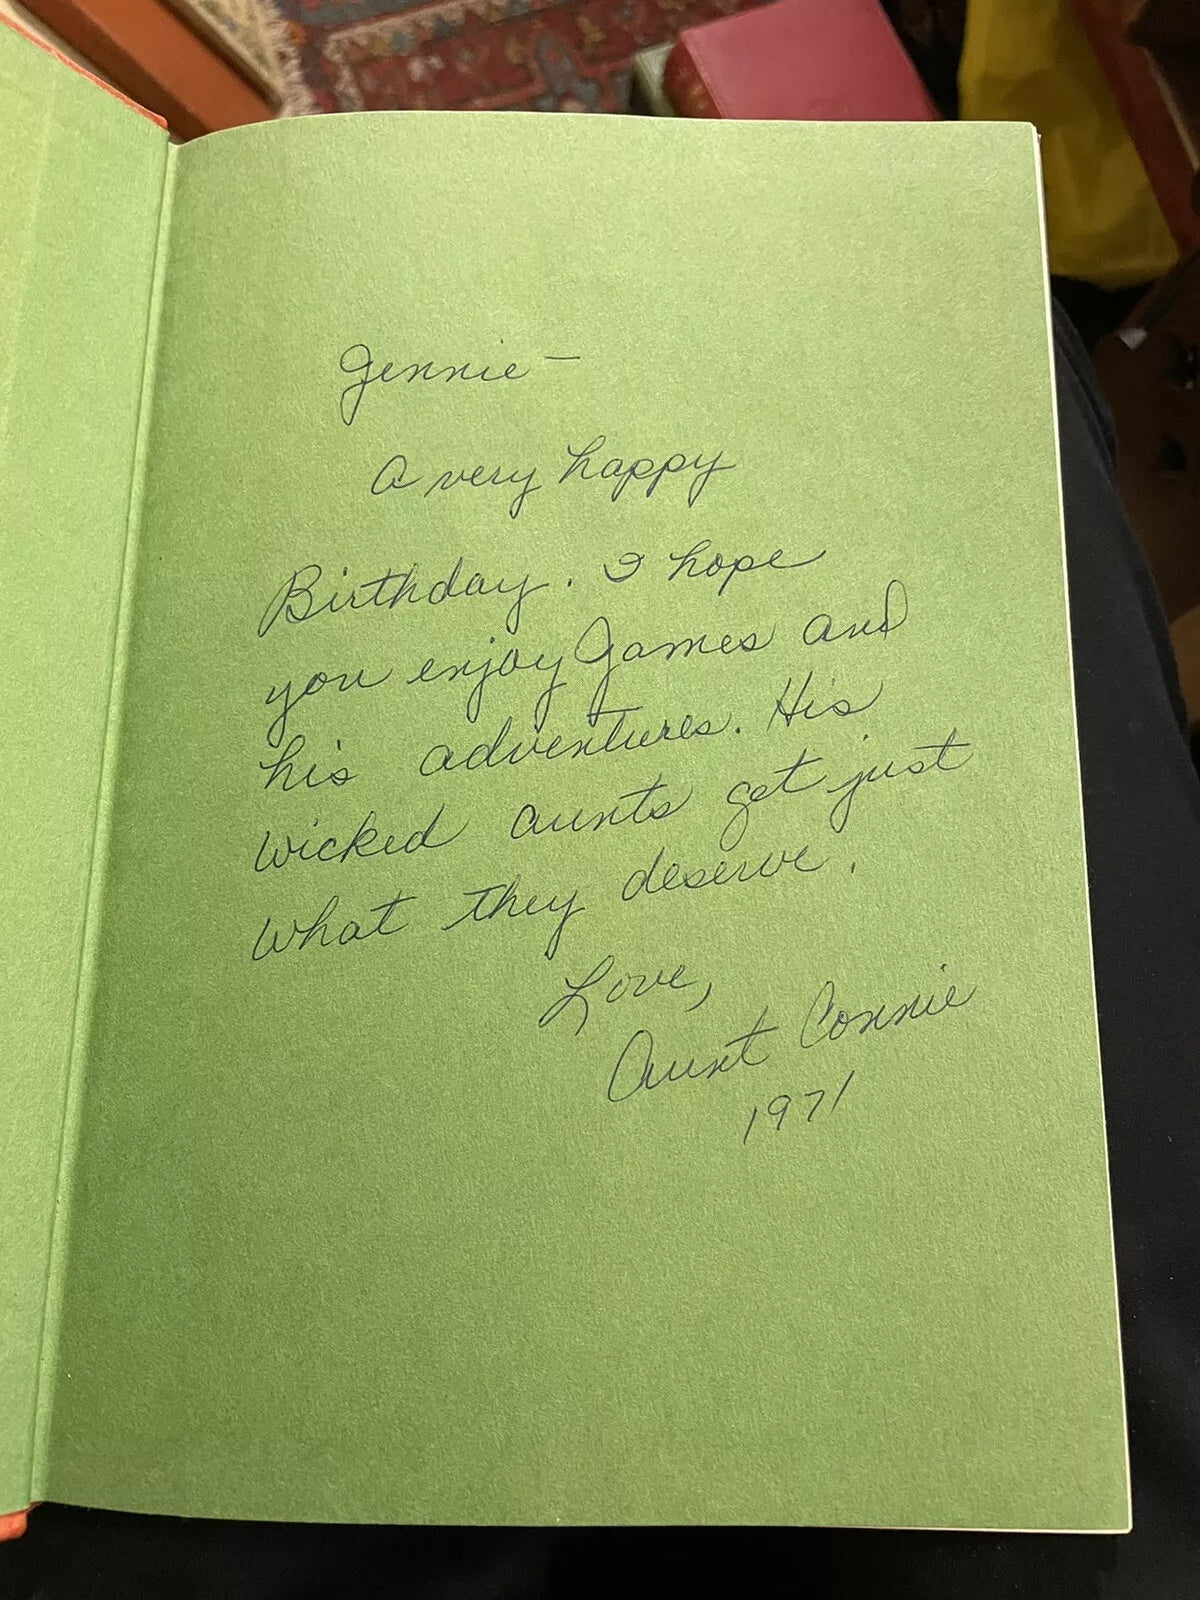 Jennie –
A very happy
Birthday. I hope
you enjoy James and
his adventures. His
wicked aunts get just
what they deserve.
Love,
Aunt Connie
1971